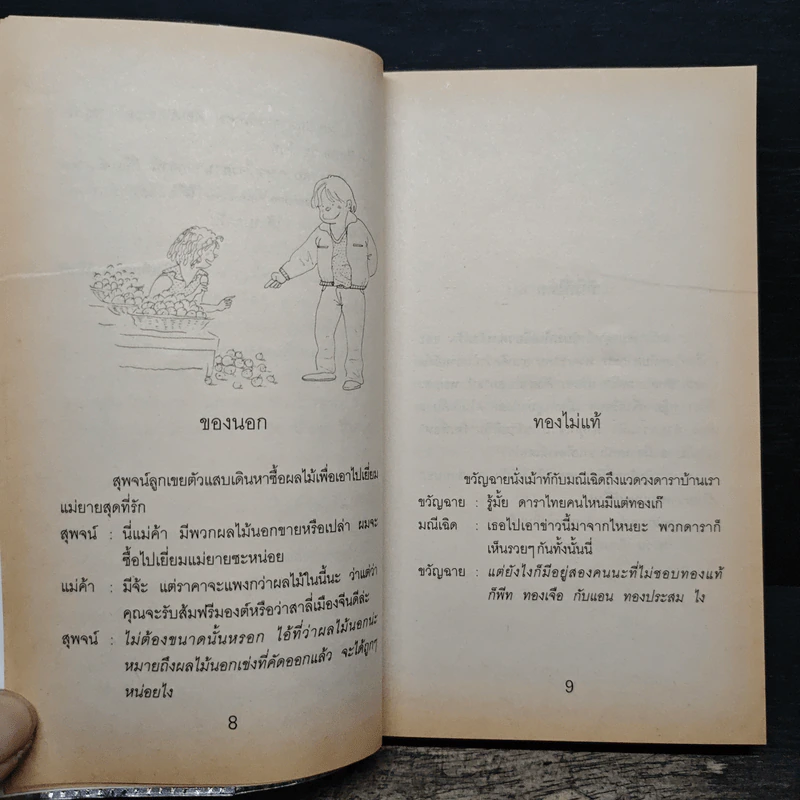 ของนอก
สุพจน์ลูกเขยตัวแสบเดินหาซื้อผลไม้เพื่อเอาไปเยี่ยม
แม่ยายสุดที่รัก
สุพจน์ : นี่แม่ค้า มีพวกผลไม้นอกขายหรือเปล่า ผมจะ
ซื้อไปเยี่ยมแม่ยายซะหน่อย
แม่ค้า : มีจ้ะ แต่ราคาจะแพงกว่าผลไม้ในนี้นะ ว่าแต่ว่า
คุณจะรับส้มฟรีมองต์หรือว่าสาลี่เมืองจีนดีล่ะ
สุพจน์ : ไม่ต้องขนาดนั้นหรอก ไอ้ที่ว่าผลไม้นอกน่ะ
หมายถึงผลไม้นอกเข่งที่คัดออกแล้ว จะได้ถูกๆ
หน่อยไง
8
ทองไม่แท้
ขวัญฉายนั่งเม้าท์กับมณีเฉิดถึงแวดวงดาราบ้านเรา
ขวัญฉาย : รู้มั้ย ดาราไทยคนไหนมีแต่ทองเก๊
มณีเฉิด : เธอไปเอาข่าวนี้มาจากไหนยะ พวกดาราก็
เห็นรวยๆ กันทั้งนั้นนี่
ขวัญฉาย : แต่ยังไงก็มีอยู่สองคนนะที่ไม่ชอบทองแท้
ก็พีท ทองเจือ กับแอน ทองประสม ไง
9